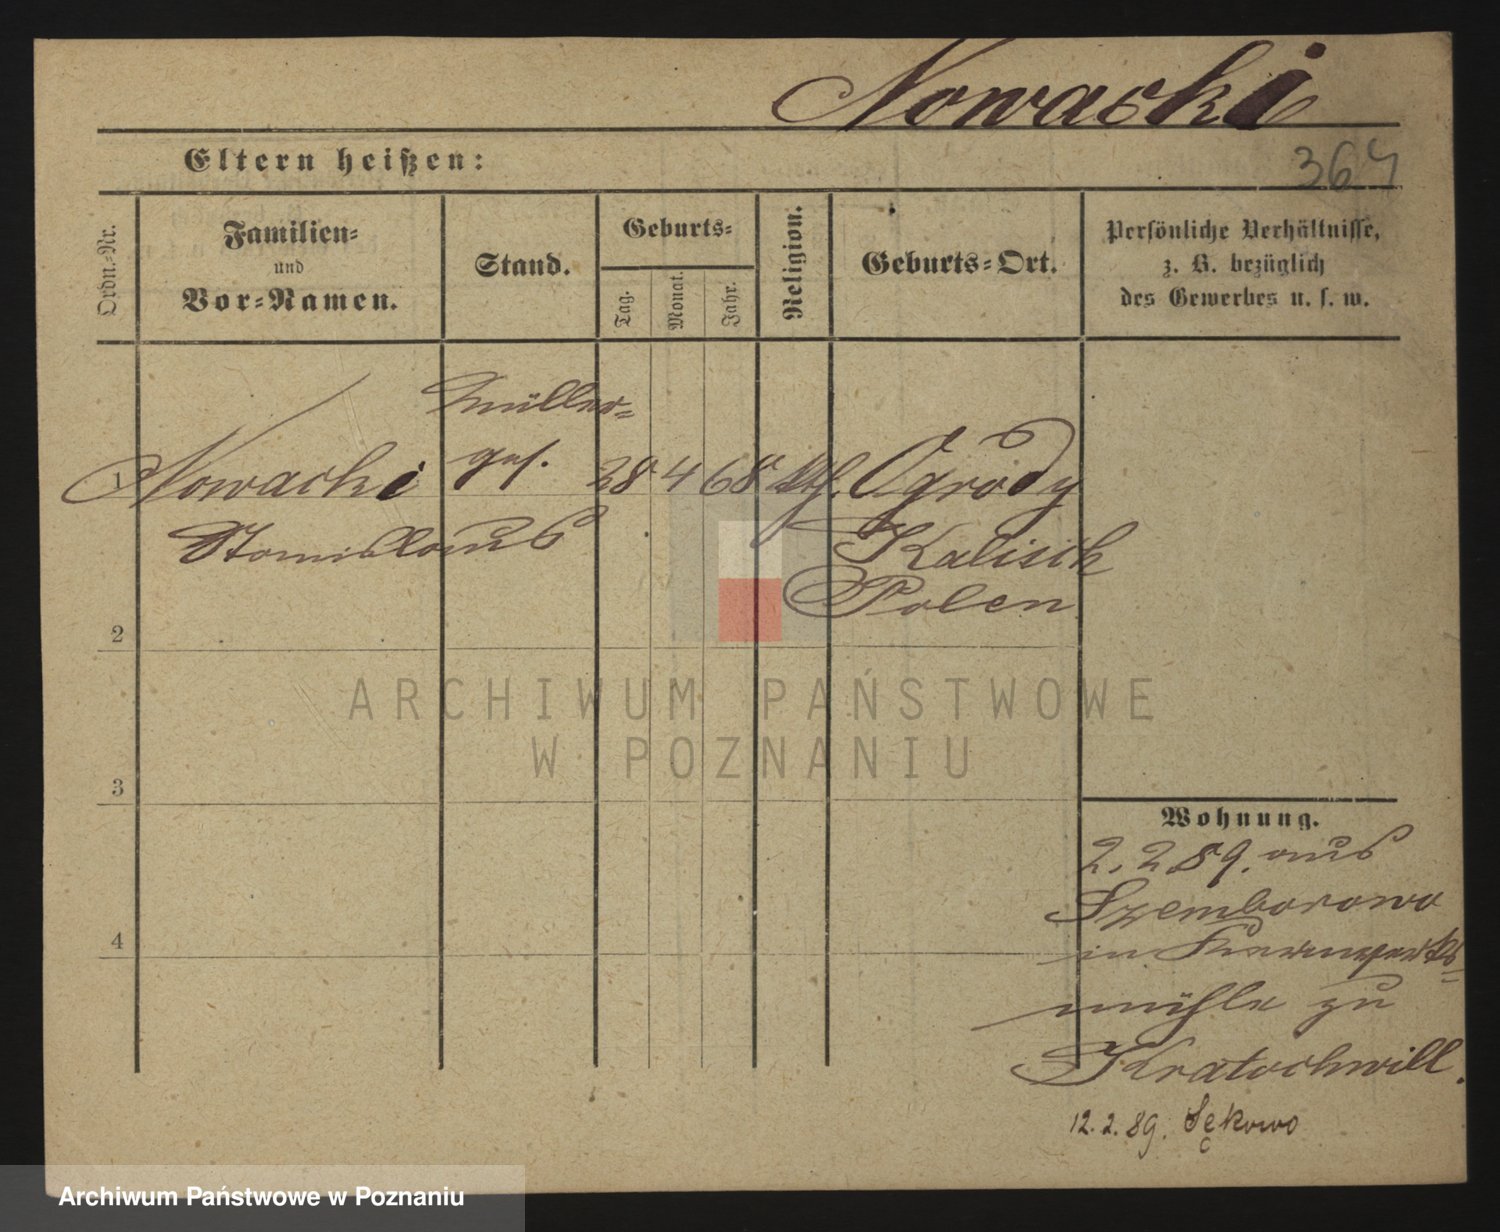 Nowacki
Eltern heißen:
364
Ordn.-Nr.
Familien-
und
Vor-Namen.
Stand.
Geburts-
Tag.
Monat.
Jahr.
Religion.
Geburts-Ort.
Persönliche Verhältnisse,
z. B. bezüglich
des Gewerbes u. s. w.
Müller-
1 Nowacki ges. 28 4 68 kth. Ogrody
Stanislaus Kalisch
Polen
2
ARCHIWUM PAŃSTWOWE
W POZNANIU
3
Wohnung.
2. 2 89. aus
Szemborowo
4
in
mühle zu
Kratochwill.
12. 2. 89. Sękowo
Archiwum Państwowe w Poznaniu